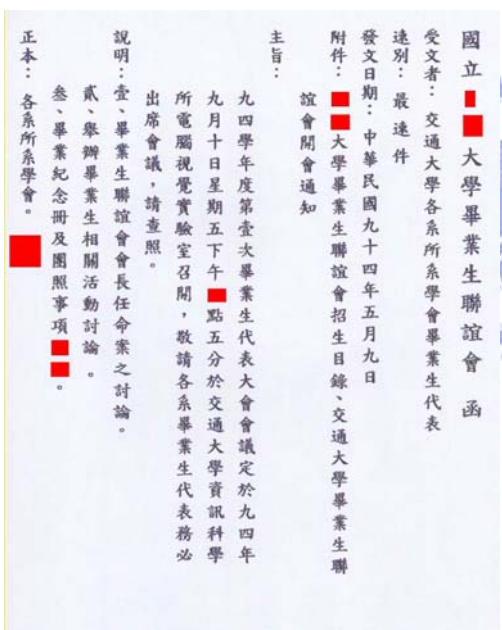 國立大學畢業生聯誼會 函
受文者：交通大學各系所系學會畢業生代表
速別：最速件
發文日期：中華民國九十四年五月九日
附件：大學畢業生聯誼會招生目錄、交通大學畢業生聯
誼會開會通知
主旨：
九四學年度第壹次畢業生代表大會會議定於九四年
九月十日星期五下午點五分於交通大學資訊科學
所電腦視覺實驗室召開，敬請各系畢業生代表務必
出席會議，請查照。
說明：壹、畢業生聯誼會會長任命案之討論。
貳、舉辦畢業生相關活動討論。
參、畢業紀念冊及團照事項。
正本：各系所系學會。